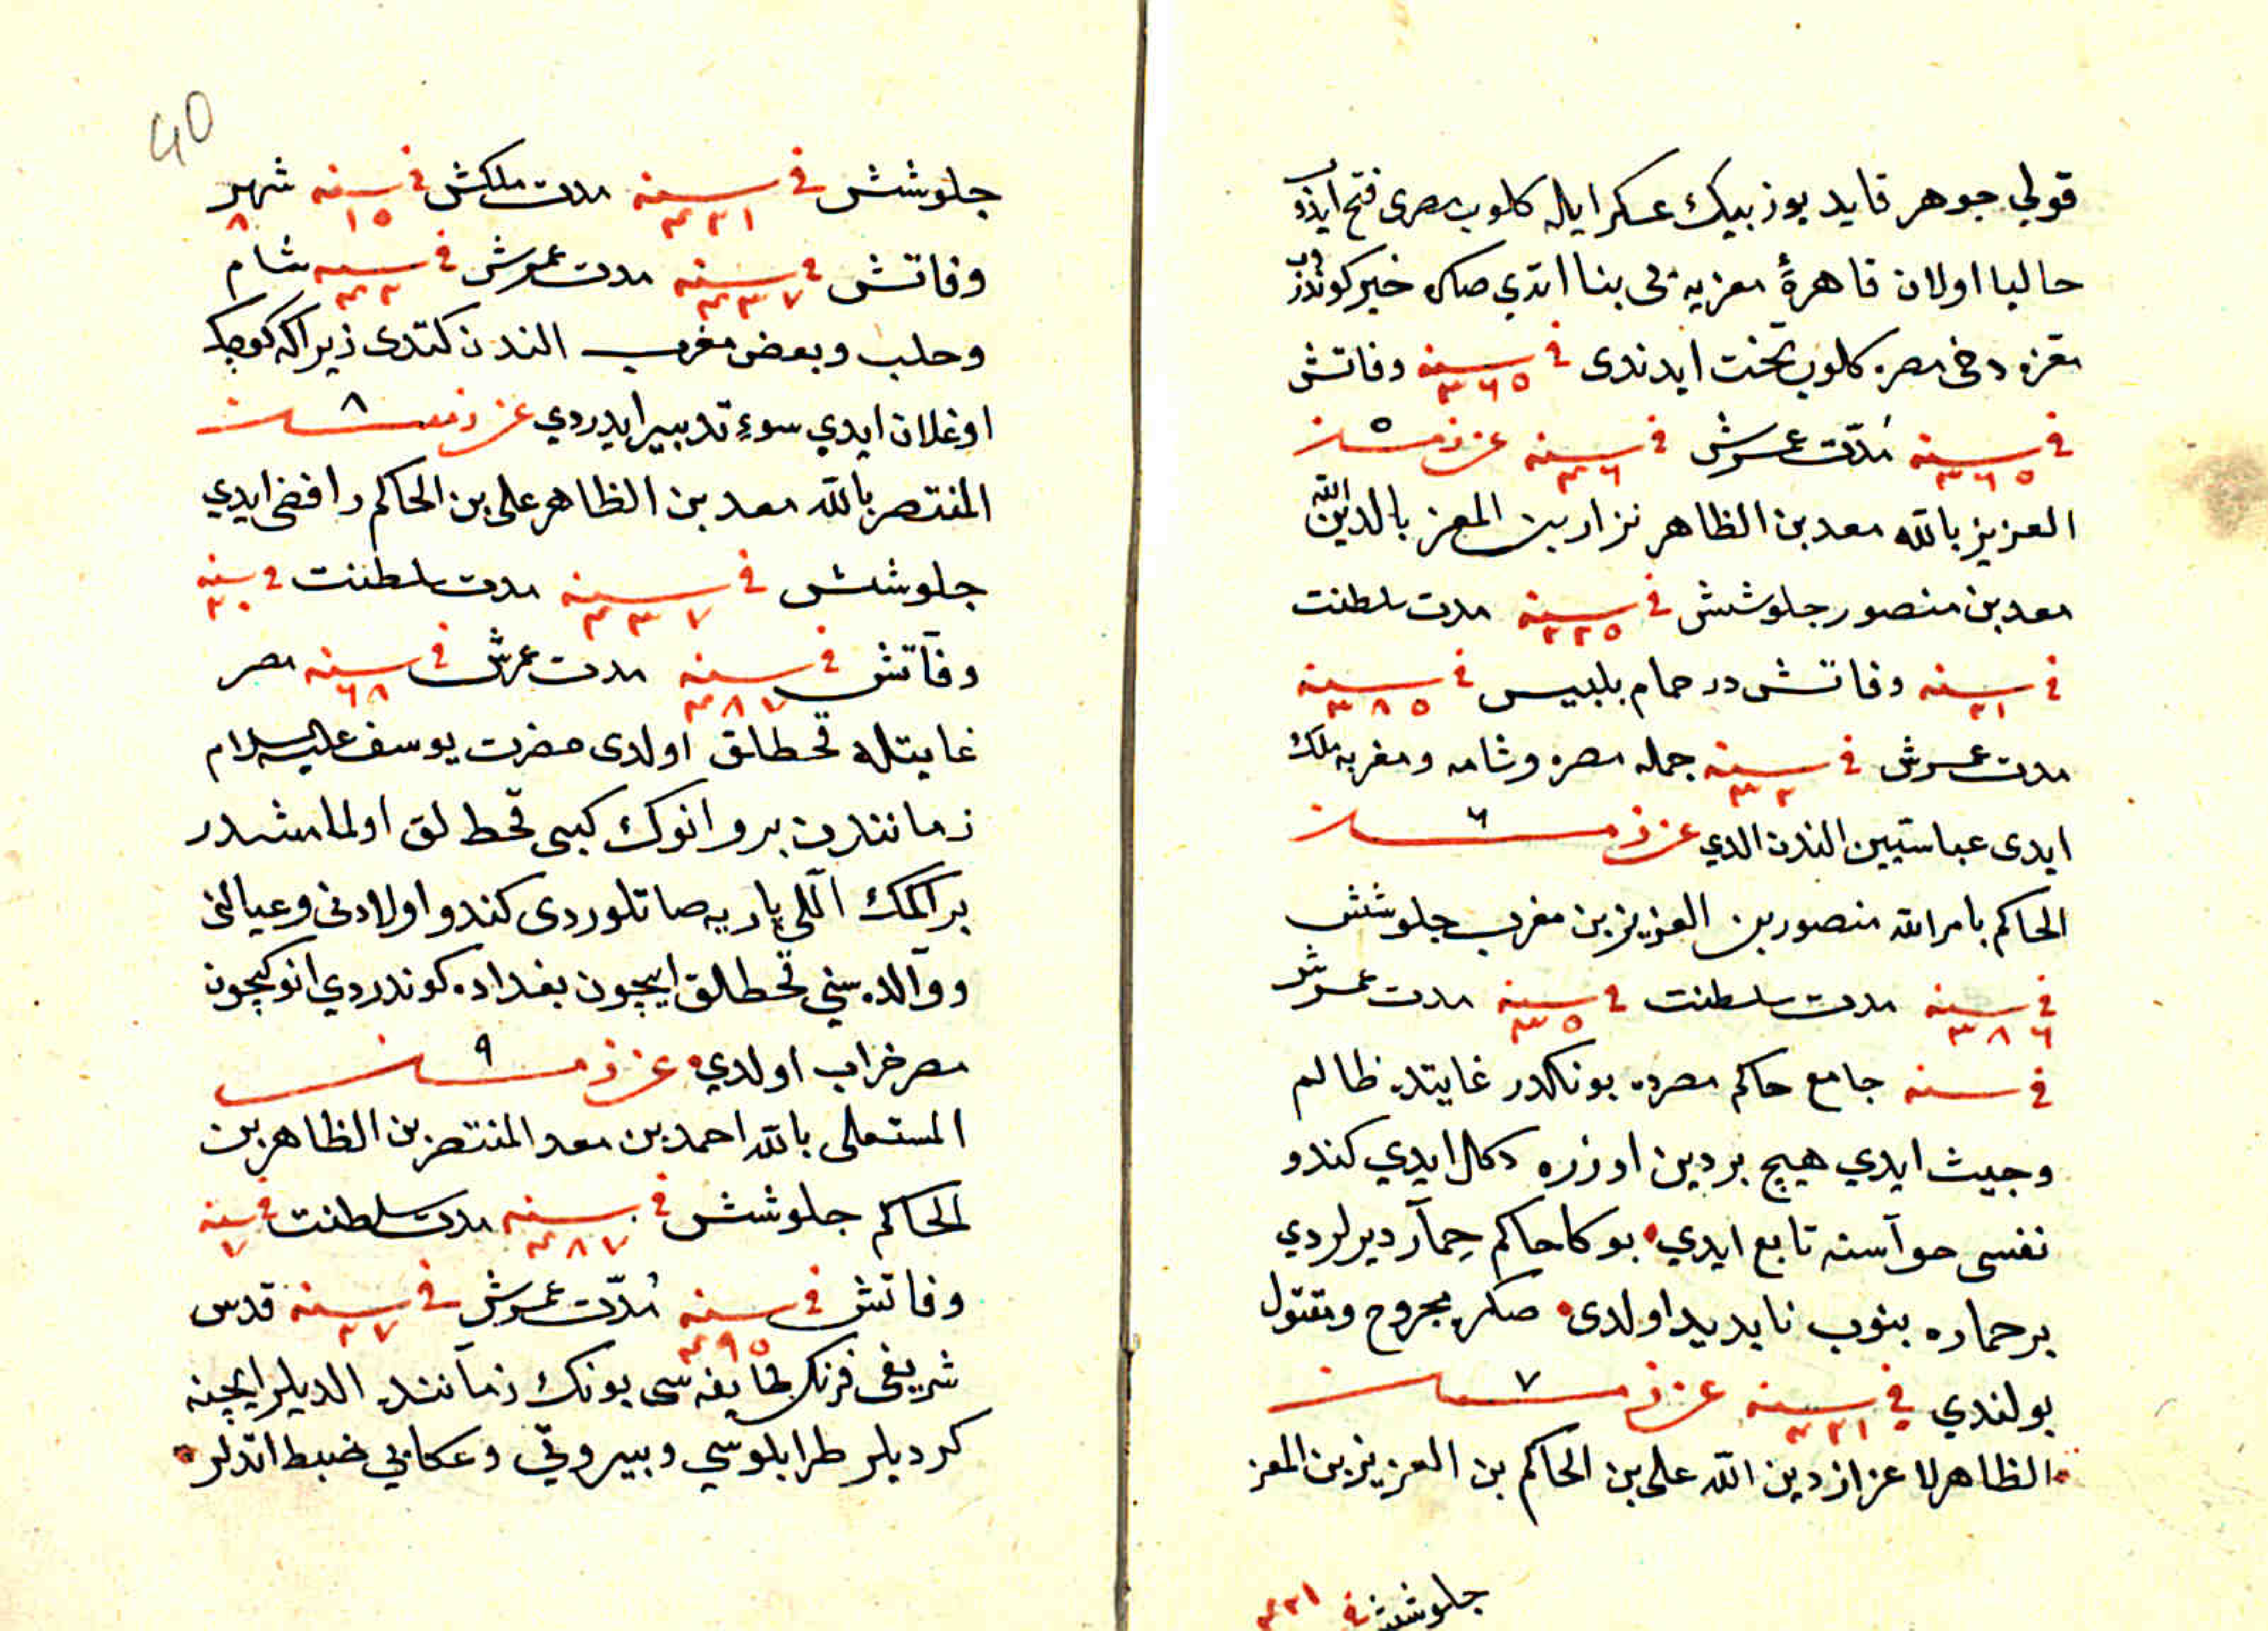 قولي جوهر قايد يوز بيك عسكر ايله كلوب مصرى فتح ايدوب
حاليا اولان قاهرهٔ معزيه‌ يى بنا اتدي صكره خبر كوندروب
معزه دخى مصره كلوب تخت ايدندى فى سنه ٣٦٥ وفاتش
فى سنه ٣٦٥ مُدّت عمرش فى سنه ٤٦ عزيز مصر ٥
العزيز بالله معد بن الظاهر نزار بين المعز بالدين الله
معد بن منصور جلوشش فى سنه ٢٢٥ مدت سلطنت
فى سنه ٢١ وفاتش در حمام بلبيس فى سنه ٣٨٥
مدت عمرش فى سنه ٤٢ جمله مصره وشامه ومغربه ملك
ايدى عباسيين الندن الدي عزيز مصر ٦
الحاكم بامر الله منصور بن العزيز بن مغرب جلوشش
فى سنه ٣٨٦ مدت سلطنت فى سنه ٣٥ مدت عمرش
فى سنه جامع حاكم مصرده بونكدر غايتده ظالم
وخبيث ايدي هيچ بر دين اوزره دكل ايدي كندو
نفسى هوآسنه تابع ايدي بوكا حاكم حمآر ديرلردي
بر حماره بنوب نابديد اولدى صكره مجروح ومقتول
بولندي فى سنه ٤٢١ عزيز مصر ٧
الظاهر لا عزاز دين الله على بن الحاكم بن العزيز بن المعز
جلوشش فى ٤٢١
40
جلوشش فى سنه ٤٢١ مدت ملكش فى سنه ١٥ شهر ٨
وفاتش فى سنه ٤٣٧ مدت عمرش فى سنه ٤٢ شام
وحلب وبعض مغرب الندن كتدى زيرا كه كوچك
اوغلان ايدي سوءِ تدبير ايدردي عزيز مصر ٨
المنتصر بالله معد بن الظاهر على بن الحاكم رافضى ايدي
جلوشش فى سنه ٤٣٧ مدت سلطنت فى سنه ٢٠
وفآتش فى سنه ٤٨٧ مدت عمرش فى سنه ٦٨ مصر
غايتله قحطلق اولدى حضرت يوسف عليه السلام
زماننندن برو انوك كبى قحطلق اولمامشدر
بر اكمك اللي پاره يه صاتلوردى كندو اولادنى وعيالنى
ووآلده سني قحطلق ايچون بغداده كوندردي انوكيچون
مصر خراب اولدي عزيز مصر ٩
المستعلى بالله احمد بن معد المنتصر بن الظاهر بن
الحاكم جلوشش فى سنه ٤٨٧ مدت سلطنت فى سنه ٧
وفاتش فى سنه ٤٩٥ مُدّت عمرش فى سنه ٢٧ قدس
شريفى فرنك طايفه سى بونك زمآننده الديلر ايچنه
كرديلر طرابلوسي وبيروتي وعكايي ضبط اتديلر